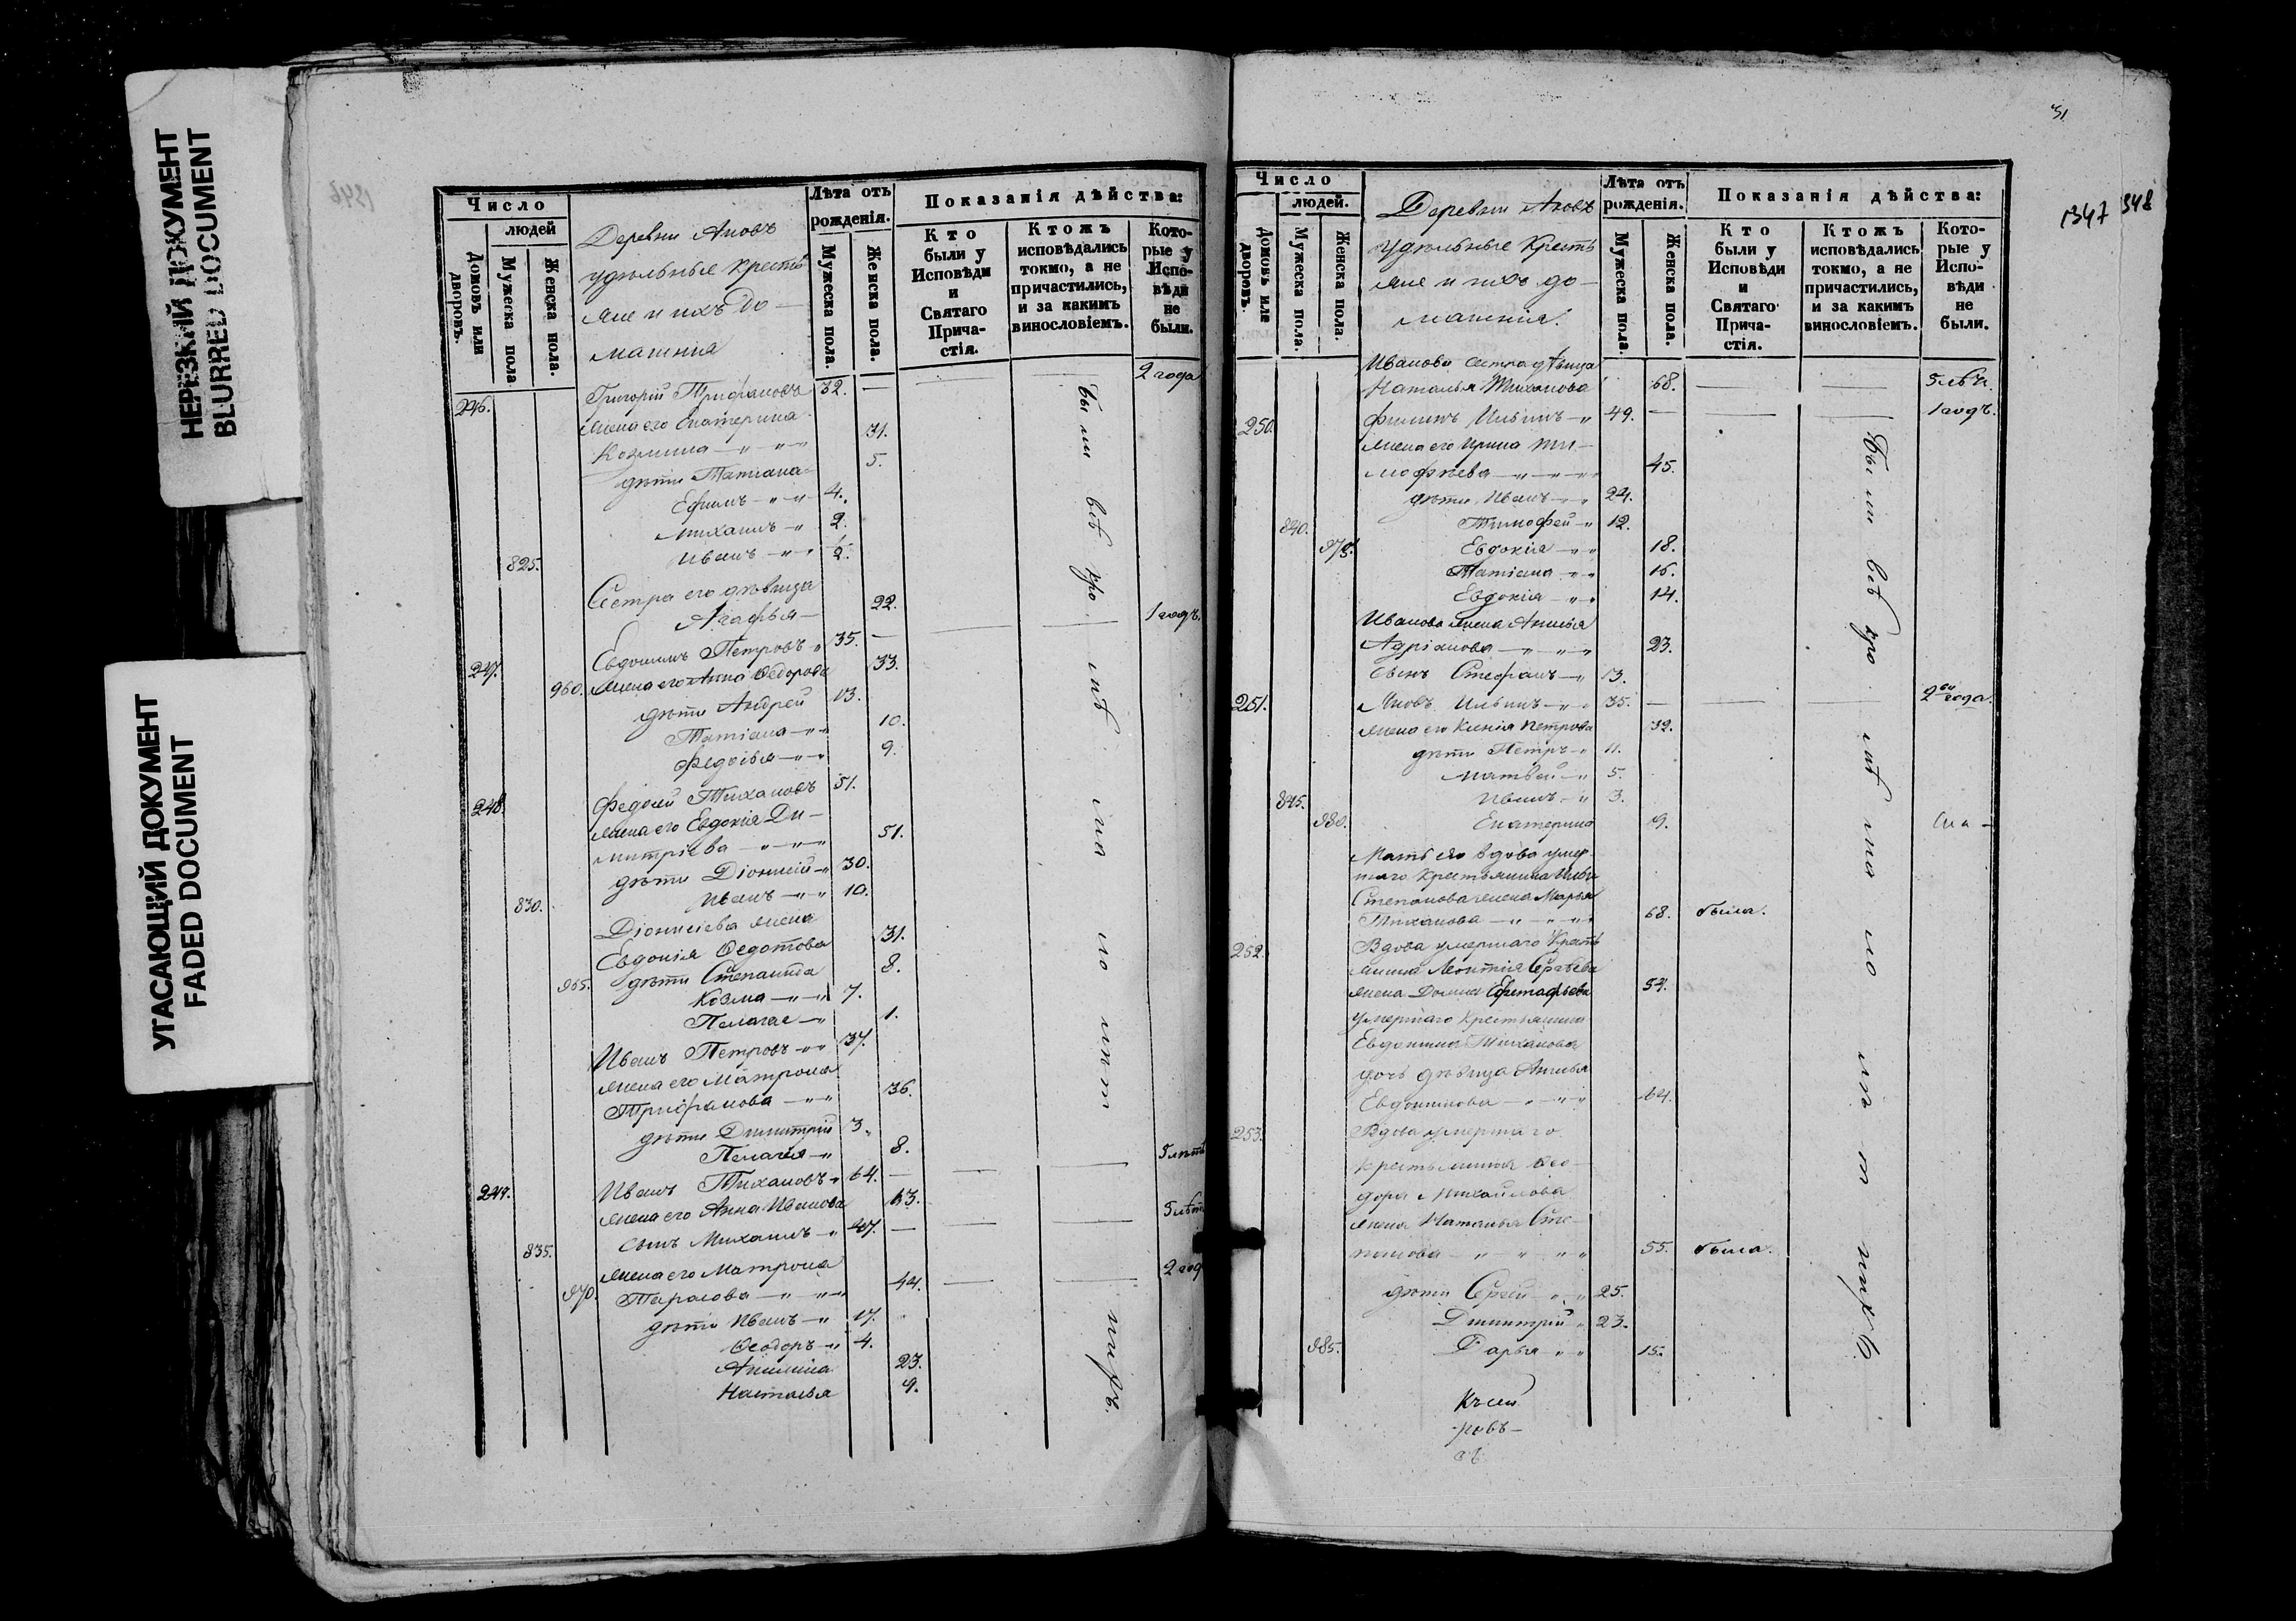 НЕРЕЗКИЙ ДОКУМЕНТ
BLURRED DOCUMENT
УГАСАЮЩИЙ ДОКУМЕНТ
FADED DOCUMENT
Число
людей
Домовъ или дворовъ.
Мужеска пола
Женска пола.
Деревни
удѣльные кресть
яне и ихъ до-
машнія
Лѣта отъ рожденія.
Мужеска пола.
Женска пола.
Показанія дѣйства:
Кто были у Исповѣди и Святаго Прича-стія.
Ктожъ исповѣдались токмо, а не причастились, и за какимъ винословіемъ.
Кото-рые у Испо-вѣди не были.
246. Григорій Трифановъ 32. — 2 года
жена его Екатерина
Козмина 31.
дѣти Татіана 5.
Ефимъ 4.
Михаилъ 2.
825. Иванъ 1/2.
Сестра его дѣвица
Агафья 22.
247. Евдокимъ Петровъ 35. — 1 годъ.
960. жена его Анна Ѳедорова 33.
дѣти Андрей 13.
Татіана 10.
Федосья 9.
248. Федосей Тихановъ 51.
жена его Евдокія Ди-
митріева 51.
дѣти Діонисій 30.
830. Иванъ 10.
Діонисіева жена
Евдокія Ѳедотова 31.
965. дѣти Степанида 8.
Козма 7.
Пелагея 1.
Иванъ Петровъ 37.
жена его Матрона
Трифанова 36.
дѣти Димитрій 3.
Пелагея 8.
249. Иванъ Тихановъ 64. — 5 лѣтъ
жена его Анна Иванова 63.
835. сынъ Михаилъ 47. — 5 лѣтъ
жена его Матрона
970. Тарасова 44. 2 год
дѣти Иванъ 17.
Ѳеодоръ 4.
Акилина 23.
Настасья 9.
31
1347
348
Число
людей.
Домовъ или дворовъ.
Мужеска пола.
Женска пола.
Деревни
удѣльные кресть
яне и ихъ до-
машнія.
Лѣта отъ рожденія.
Мужеска пола.
Женска пола.
Показанія дѣйства:
Кто были у Исповѣди и Святаго Прича-стія.
Ктожъ исповѣдались токмо, а не причастились, и за какимъ винословіемъ.
Кото-рые у Испо-вѣди не были.
Иванова сестра дѣвица
Наталья Тиханова 68. 5 лѣтъ.
250. Филипъ Ильинъ 49. — 1 годъ.
жена его Ирина Ти-
мофѣева 45.
дѣти Иванъ 24.
840. Тимофей 12.
975. Евдокія 18.
Татіана 16.
Евдокія 14.
Иванова жена Анисья
Адріанова 23.
сынъ Стефанъ
251. Яковъ Ильинъ 35. — 2 года.
жена его Ксенія Петрова 32.
дѣти Петръ 11.
Матвей 5.
845. Иванъ 3.
980. Екатерина 9.
Мать его вдова умер-
шаго крестьянина Ильи
Степанова жена Марья
Тиханова 68. была.
252. Вдова умершаго кресть
янина Леонтія Сергѣева
жена Домна 54.
умершаго крестьянина
Евдокима Тиханова
дочь дѣвица Анисья
Евдокимова 64.
253. Вдова умершаго
крестьянина Ѳео-
дора Михайлова
жена Наталья Сте-
панова 55. была.
дѣти Сергей 25.
Димитрій 23.
985. Дарья 15.